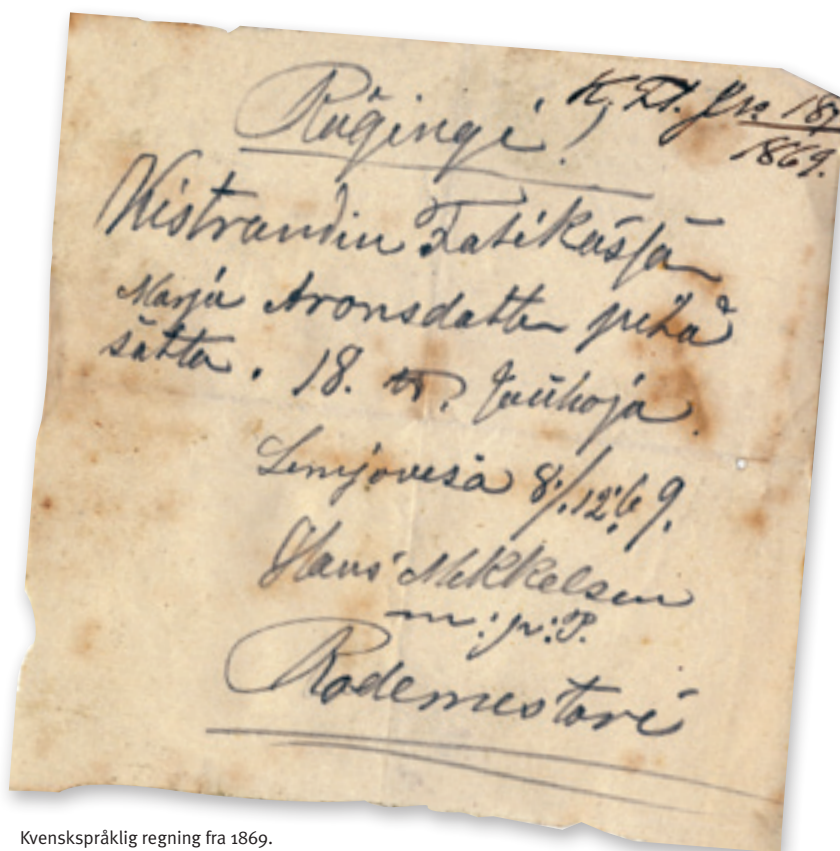 Räğingi! K. Zt. Jr. 187
1869.
Kistrandin Fatikašjan
Marja Aronsdatter pitä
sätta. 18. tr. Jauhoja.
Lemjovesä 8/12 69.
Hans Mikkelsen
m: p: P.
Rodemestari
Kvenskspråklig regning fra 1869.